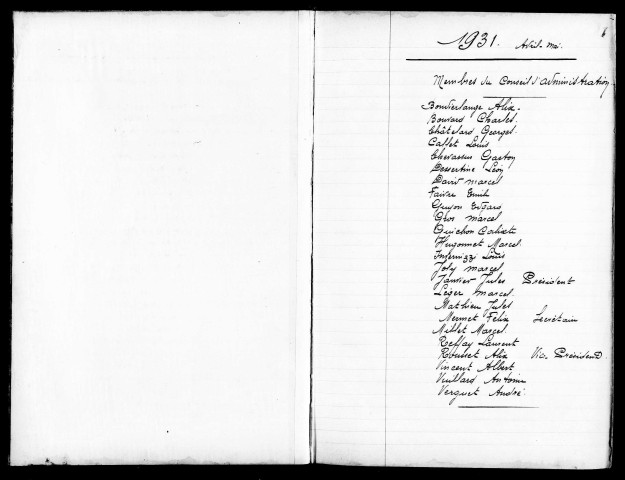 1931. Avril-Mai.
Membres du Conseil d'administration
Bondierlange Alix.
Bouvard Charles.
Châtelard Georges.
Callet Louis
Chevassus Gaston
Dessertine Léon
David Marcel
Faivre Emile
Guyon Edgard
Gros Marcel
Guichon Calixte
Hugonnet Marcel
Invernizzi Louis
Joly Marcel
Janvier Jules Président
Léger Marcel.
Mathieu Jules
Mermet Félix Secrétaire
Millet Marcel.
Reffay Laurent
Rousset Alix Vice Président
Vincent Albert
Vuillard Antoine
Verguet André.